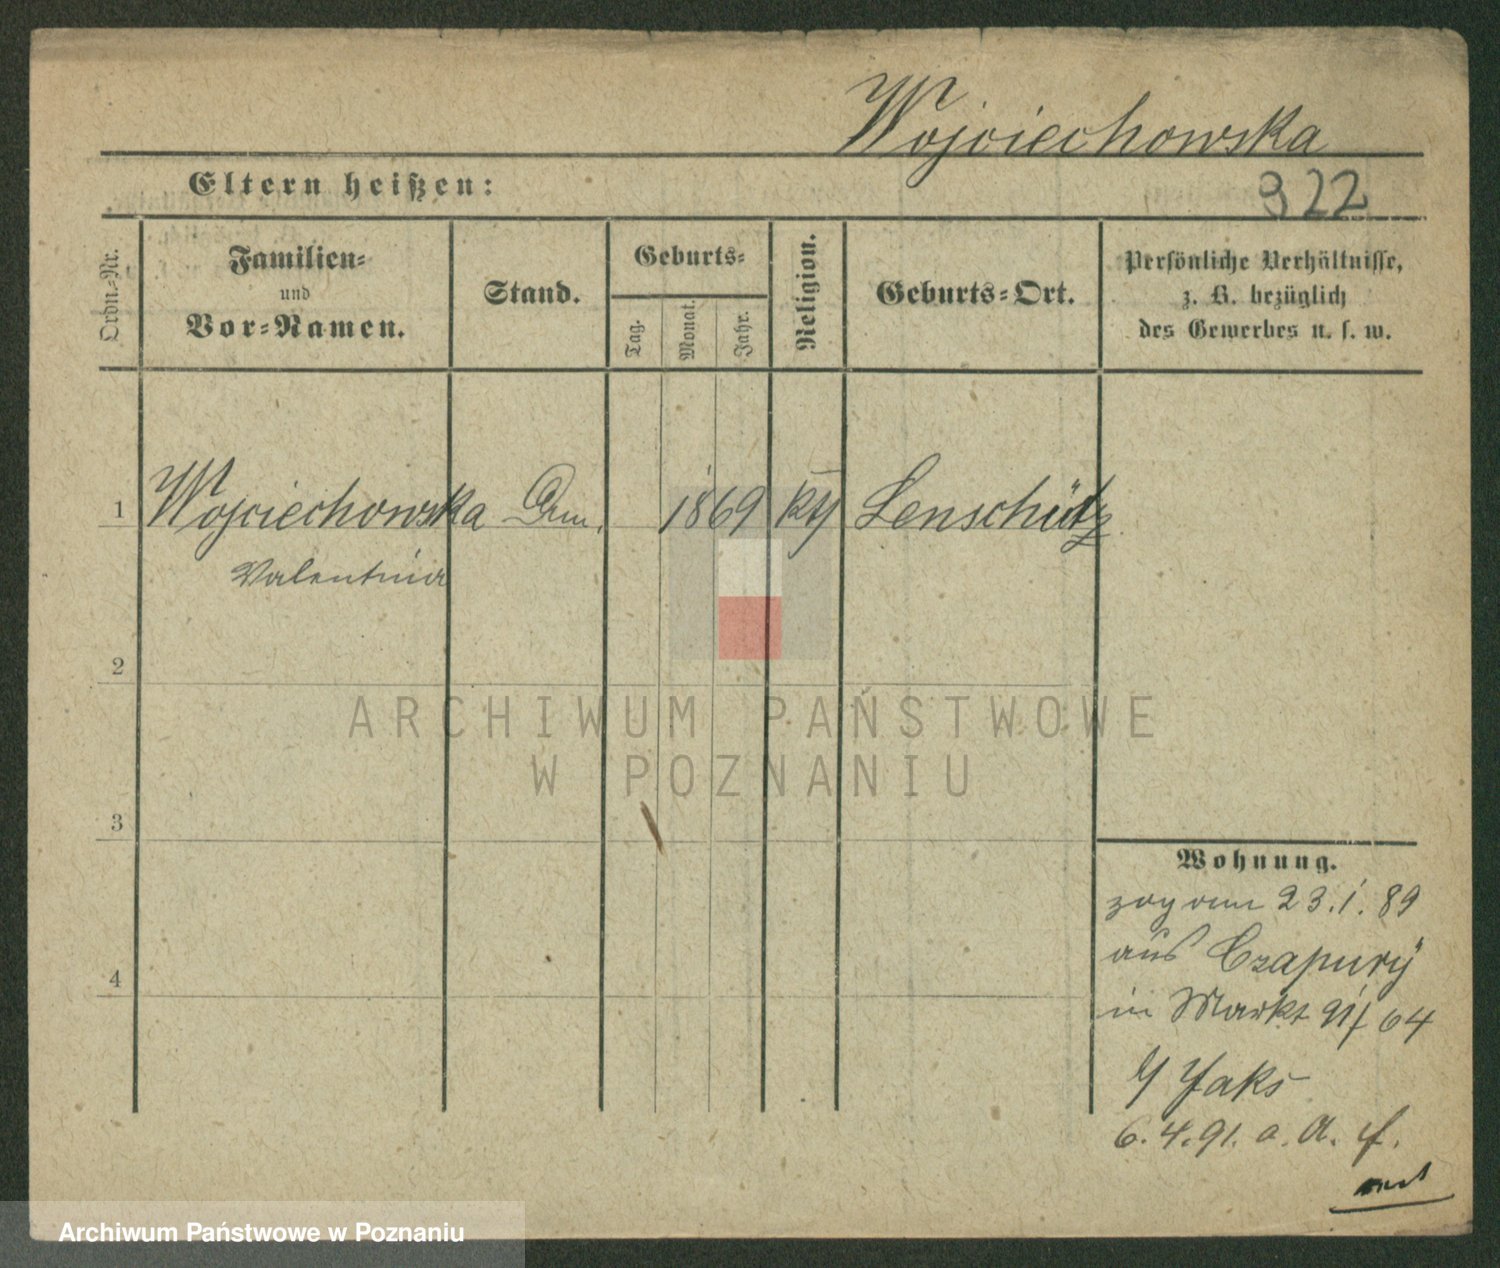 Wojciechowska
Eltern heißen:
922
Ordn.-Nr.
Familien-
und
Vor-Namen.
Stand.
Geburts-
Tag.
Monat.
Jahr.
Religion.
Geburts-Ort.
Persönliche Verhältnisse,
z. B. bezüglich
des Gewerbes u. s. w.
1 Wojciechowska 1869 Lenschütz
Valentina
2
ARCHIWUM PAŃSTWOWE
W POZNANIU
3
Wohnung.
zog am 23.1.89
aus Czapury
in Markt 91/64
4
Jaks
6.4.91. a. A. f.
Archiwum Państwowe w Poznaniu